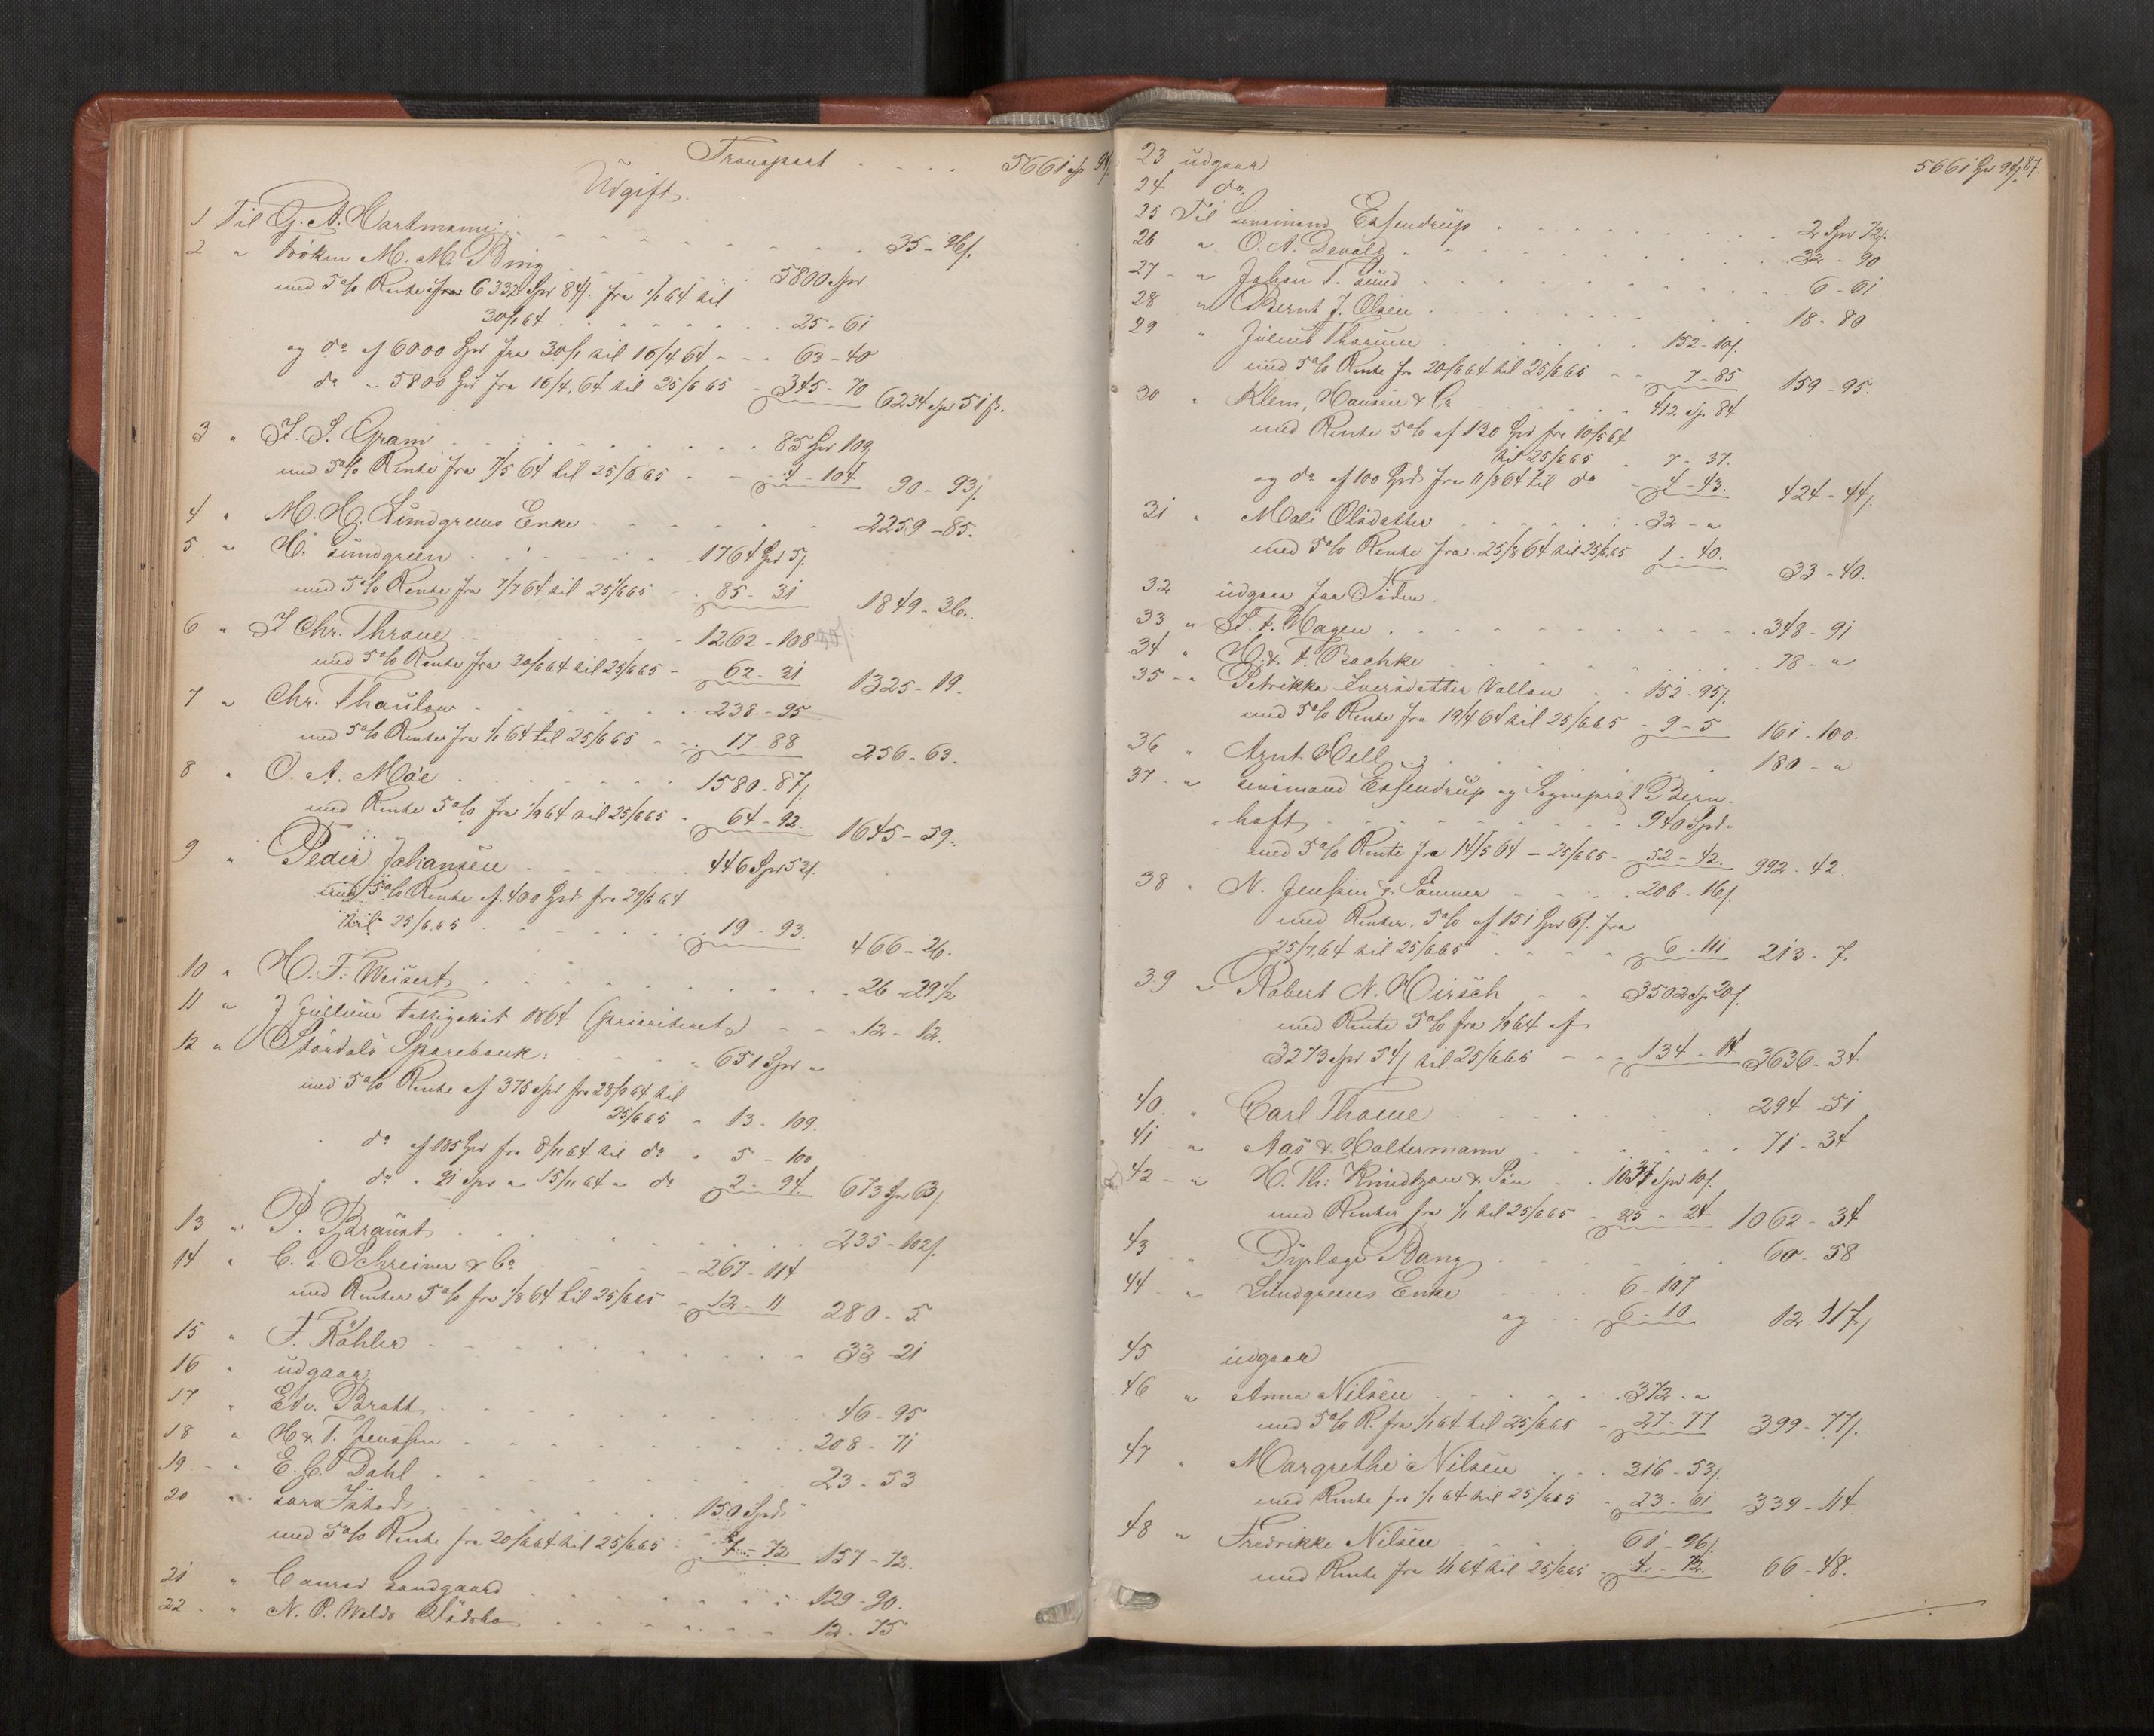 Transport . . . . 5661 Spd 9 ß
Udgift.
1 Til G. A. Hartmann . . . . 35 - 96 ß.
2 " M. M. Bing . . . 5800 Spd.
med 5 % Rente fra 6332 Spd 84 ß. fra 1/1 64 til
30/1 64 . . . . 25 - 61
og do af 6000 Spd fra 30/1 til 16/4 64 - - - 63 - 40
do " 5800 Spd fra 16/4 64 til 25/6 65 - 345 - 70 6234 Spd 51 ß.
3 " J. S. Gram . . . . 85 Spd 109
med 5 % Rente fra 7/5 64 til 25/6 65 - - 4 - 104 90 - 93 ß.
4 " M. H. Lundgreens Enke . . . . 2259 - 85.
5 " H. Lundgreen . . . . 1764 Spd 5 ß.
med 5 % Rente fra 7/7 64 til 25/6 65 - 85 - 31 1849 - 36.
6 " J Chr. Throne . . . 1262 - 108
med 5 % Rente fra 30/6 64 til 25/6 65 - 62 - 31 1325 - 19.
7 " Chr. Thaulow . . . . 238 - 95
med 5 % Renter fra 1/1 64 til 25/6 65 - 17 - 88 256 - 63.
8 " O. A. Moe . . . . 1580 - 87 ß.
med Rente 5 % fra 1/9 64 til 25/6 65 - 64 - 92. 1645 - 59.
9 " Peder Johansen . . . . 446 Spd 52 ß.
med 5 % Rente af 400 Spd fra 29/6 64
til 25/6 65 . . . . 19 - 93. 466 - 26.
10 " H. F. Weisert . . . . 26 - 29 1/2
11 " 1864 (prioriteret) - - 12 - 12.
12 " Stördals Sparebank: . . . 651 Spd "
med 5 % Rente af 375 Spd fra 28/9 64 til
25/6 65 - 13 - 109.
do af 185 Spd fra 8/11 64 til do " 5 - 100
do " 91 Spd " 15/11 64 " do 2 - 94. 673 Spd 63 ß.
13 " P. Brandt . . . . 235 - 102 ß.
14 " C. L. Schreiner & Co - - 267 - 114
med Renter 5 % fra 1/8 64 til 25/6 65 - 12 - 11 280 - 5.
15 " F. Köhler . . . . 33 - 21
16 " udgaar
17 " Edv. Bratt . . . . 46 - 95
18 " H & T. Jenssen . . . . 208 - 71
19 " E. C. Dahl . . . . 23 - 53
20 " Lars . . . . 150 Spd.
med 5 % Rente fra 20/6 64 til 25/6 65 - 7 - 72 157 - 72.
21 " Conrad Landgaard . . . . 129 - 90.
22 " N. P. Dödsbo . . . . 12 - 75
5661 Spd 9 ß 87.
23 udgaar
24 do.
25 Til Lensmand Essendrup . . . . 2 Spd 72 ß.
26 " O. A. Devold . . . . 32 - 90
27 - " Johan T. Lund . . . . 6 - 61
28 " Bernt J. Olsen . . . . 18 - 80
29 " Julius Thorum . . . . 152 - 10 ß.
med 5 % Rente fr 20/6 64 til 25/6 65 - - 7 - 85 159 - 95.
30 " Klem, Hansen & Co . . . . 412 Sp 84
med Rente 5 % af 130 Spd fra 10/5 64
til 25/6 65 " 7 - 37.
og do af 100 Spd fra 11/8 64 til do - 4 - 43. 424 - 44 ß.
31 " Mali Olsdatter . . . . 32 - "
med 5 % Rente fra 25/8 64 til 25/6 65 1 - 40. 33 - 40.
32 udgaar
33 " F. A. Hagen . . . . 348 - 91
34 " H. & F. Bachke . . . . 78 - "
35 - " Petrikke Iversdatter Vollan . . 152 - 95 ß.
med 5 % Rente fra 19/4 64 til 25/6 65 - 9 - 5 161 - 100.
36 " Arnt Hell . . . . 180 - "
37 - " Lensmand Essendrup og Sognepræst Bern-
hoft . . . . 940 Spd "
med 5 % Rente fra 14/5 64 - 25/6 65 - 52 - 42. 992 - 42.
38 " N. Jenssen & Sönner . . . . 206 - 16 ß.
med Renter 5 % af 151 Spd 6 ß. fra
25/7 64 til 25/6 65 . . . . 6 - 111 213 - 7.
39 " Robert N. Hirsch - - 3502 Sp 20 ß.
med Rente 5 % fra 1/9 64 af
3273 Spd 54 ß til 25/6 65 - - - 134 - 14 3636 - 34
40. " Carl Thome . . . . 294 - 51
41 - " Aas & Haltermann . . . . 71 - 34
42 - " H. Th: Knudtzon & Sön . . 1037 Spd 10 ß.
med Renter fra 1/1 til 25/6 65 - 25 - 24 1062 - 34
43 - " Dyrlæge Bang . . . . 60 - 58
44 - " Lundgreens Enke . . . . 6 - 107
og . . 6 - 10 12. 117 ß
45 udgaar
46 " Anna Nilsen . . . . 372 - "
med 5 % R. fra 1/1 64 til 25/6 65 - 27 - 77 399 - 77 ß.
47 " Margrethe Nilsen . . . 316 - 53 ß.
med Rente fra 1/1 64 til 25/6 65 - 23 - 61 339 - 114
48 " Fredrikke Nilsen . . . . 61 - 96 ß
med Rente fra 1/1 64 til 25/6 65 - 4 - 72. 66 - 48.